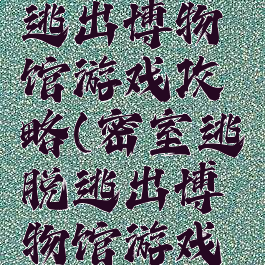 逃出博物
馆游戏攻
略(密室逃
脱逃出博
物馆游戏